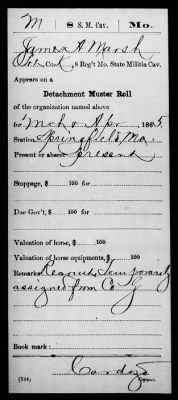 M 8 S. M. Cav. Mo.
James A Marsh
Co. K, 8 Reg't Mo. State Militia Cav.
Appears on a
Detachment Muster Roll
of the organization named above
for Mch & Apr, 1865.
Station Springfield, Mo.
Present or absent Present
Stoppage, $ 100 for
Due Gov't, $ 100 for
Valuation of horse, $ 100
Valuation of horse equipments, $ 100
Remarks: Recruit, Temporarily
assigned from Co G
Book mark:
Cardozo
(344) Copyist.